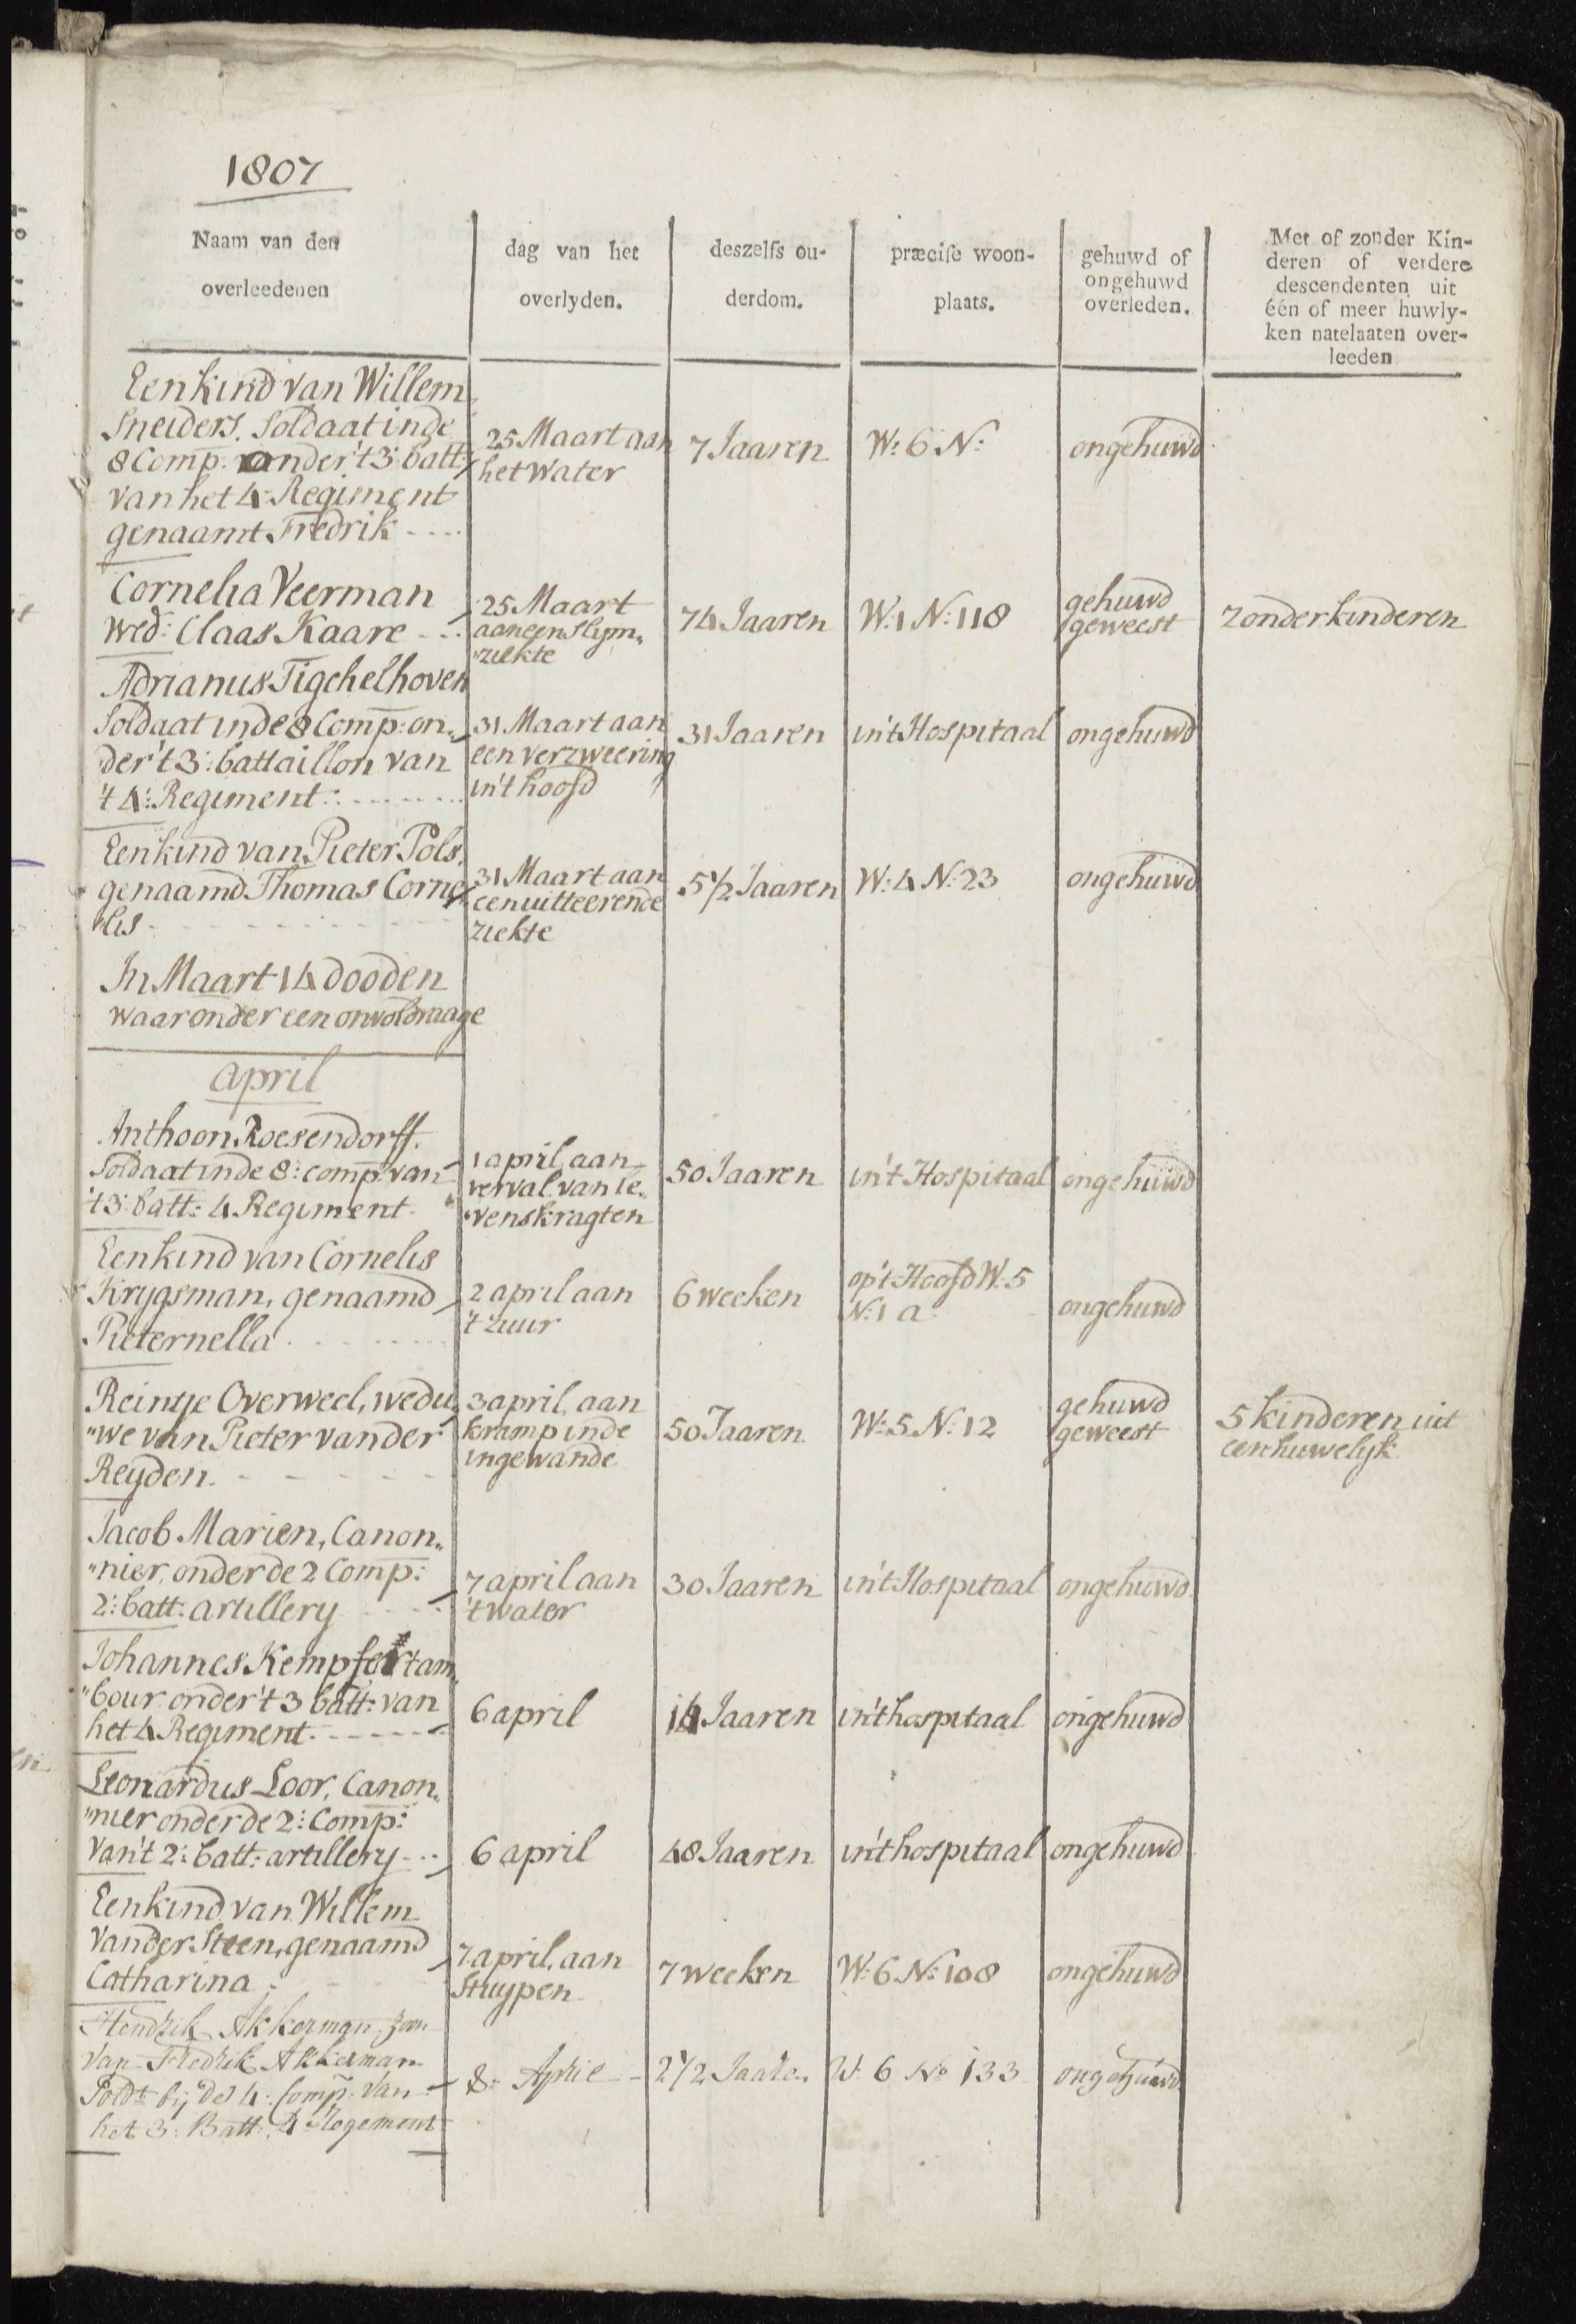 1807
Naam van den
overleedenen
dag van het
overlyden.
deszelfs ou-
derdom.
præcise woon-
plaats.
gehuwd of
ongehuwd
overleden.
Met of zonder Kin-
deren of verdere
descendenten uit
één of meer huwly-
ken natelaaten over-
leeden
Een kind van Willem
Sneiders. Soldaat in de
8 Comp: onder 't 3: batt:
van het 4: Regiment
genaamt Fredrik ----
25 Maart aan
het Water
7 Jaaren
W: 6 N:
ongehuwd
Cornelia Veerman
Wed: Claas Kaare ---
25 Maart
aan een slym„
„ziekte
74 Jaaren
W: 1 N: 118
gehuwd
geweest
Zonder kinderen
Adrianus Tigchelhoven
Soldaat in de 8 Comp: on„
der 't 3: battaillon van
't 4: Regiment: -------
31 Maart aan
een verzweering
in 't hoofd
31 Jaaren
in 't Hospitaal
ongehuwd
Een kind van Pieter Pols,
genaamd Thomas Corne„
„lis - - - - - - - -
31 Maart aan
een uitteerende
ziekte
5 1/2 Jaaren
W: 4 N: 23
ongehuwd
In Maart 14 dooden
waar onder een onvoldraage
April
Anthoon Roesendorff.
Soldaat in de 8: comp: van
't 3: batt: 4 Regiment.
1 april, aan
verval van le„
„venskragten
50 Jaaren
in 't Hospitaal
ongehuwd
Een kind van Cornelis
Krygsman, genaamd
Pieternella - - - -
2 april aan
't zuur
6 weeken
op 't Hoofd W: 5
N: 1 a.
ongehuwd
Reintje Overweel, wedu„
„we van Pieter van der
Reyden. - - - - -
3 april, aan
kramp in de
ingewande
50 Jaaren
W: 5 N: 12
gehuwd
geweest
5 kinderen uit
een huwelijk
Jacob Marien, Canon„
„nier, onder de 2 Comp:
2: batt: artillery ----
7 april aan
't water
30 Jaaren
in 't Hospitaal
ongehuwd
Johannes Kempfer tam„
„bour onder 't 3 batt: van
het 4 Regiment. ------
6 april
14 Jaaren
in 't hospitaal
ongehuwd
Leonardus Loor, Canon„
„nier onder de 2: Comp:
van 't 2: batt: artillery ---
6 april
48 Jaaren
in 't hospitaal
ongehuwd
Een kind van Willem
van der Steen, genaamd
Catharina - - -
7 april, aan
Stuypen
7 weeken
W: 6 N: 108
ongehuwd
Hendrik Akkerman zoon
van Fredrik Akkerman
Soldt bij de 4: Comp: van
het 3: Batt: 4 Regement
8: April -
2 1/2 Jaaren
W: 6 No 133
ongehuwd